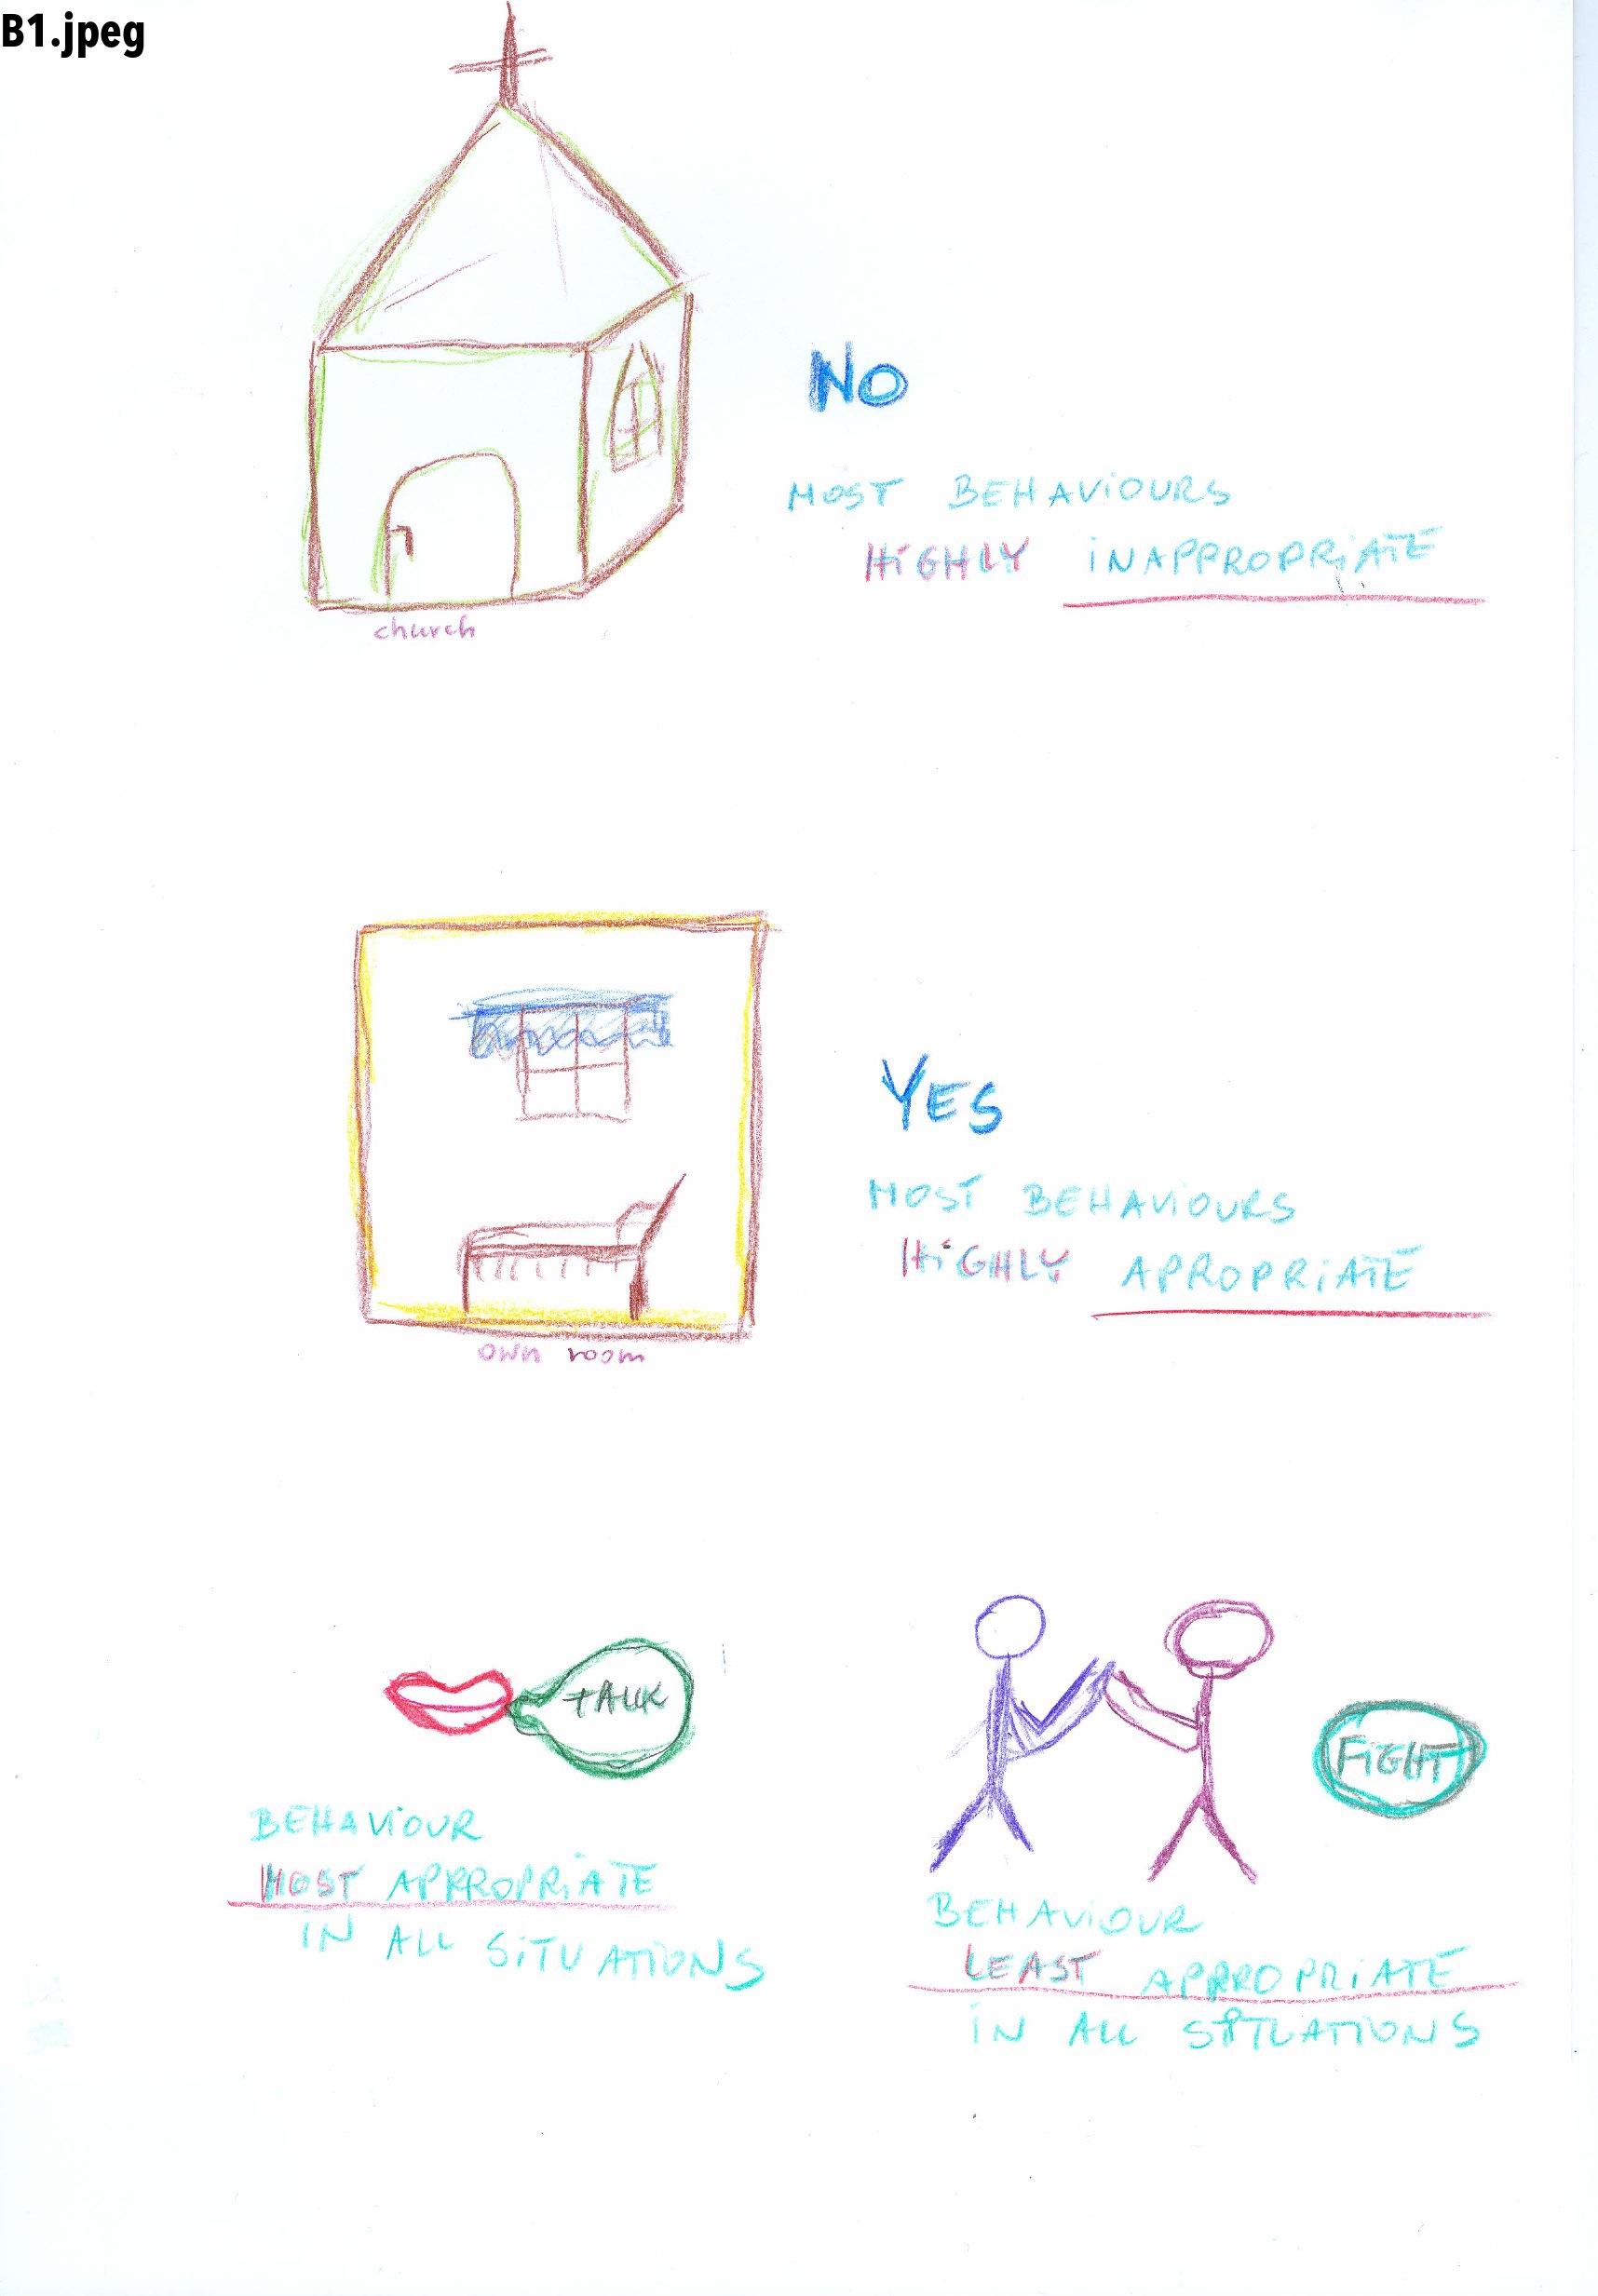 B1.jpeg
NO
MOST BEHAVIOURS
HIGHLY INAPPROPRIATE
church
YES
MOST BEHAVIOURS
HIGHLY APROPRIATE
own room
TALK
FIGHT
BEHAVIOUR
MOST APPROPRIATE
IN ALL SITUATIONS
BEHAVIOUR
LEAST APPROPRIATE
IN ALL SITUATIONS